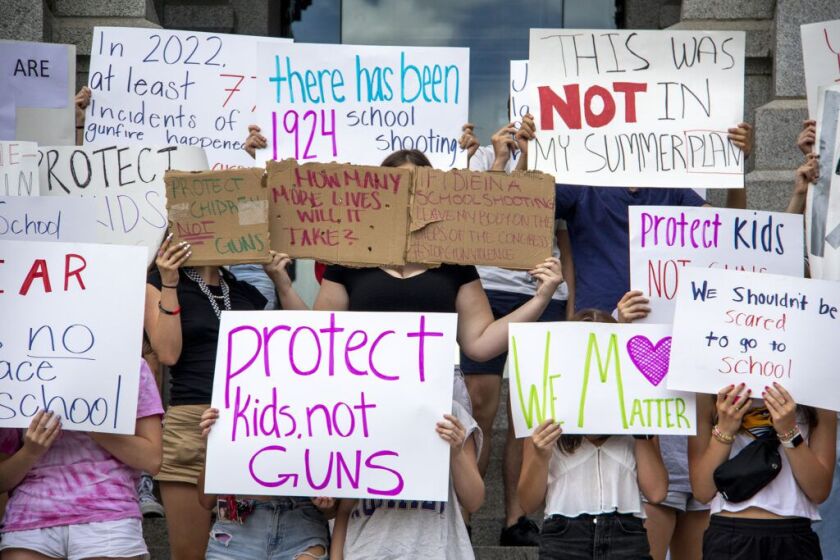 ARE
In 2022,
at least
Incidents of
gunfire happened
there has been
1924 school
shooting
THIS WAS
NOT IN
MY SUMMER PLAN
PROTECT
KIDS
PROTECT
CHILDREN
NOT
GUNS
HOW MANY
MORE LIVES
WILL IT
TAKE?
IF I DIE IN A
SCHOOL SHOOTING
LEAVE MY BODY ON THE
STEPS OF THE CONGRESS
#STOPGUNVIOLENCE
School
Protect kids
NOT
We Shouldn't be
scared
to go to
school
no
school
protect
kids, not
GUNS
We Matter